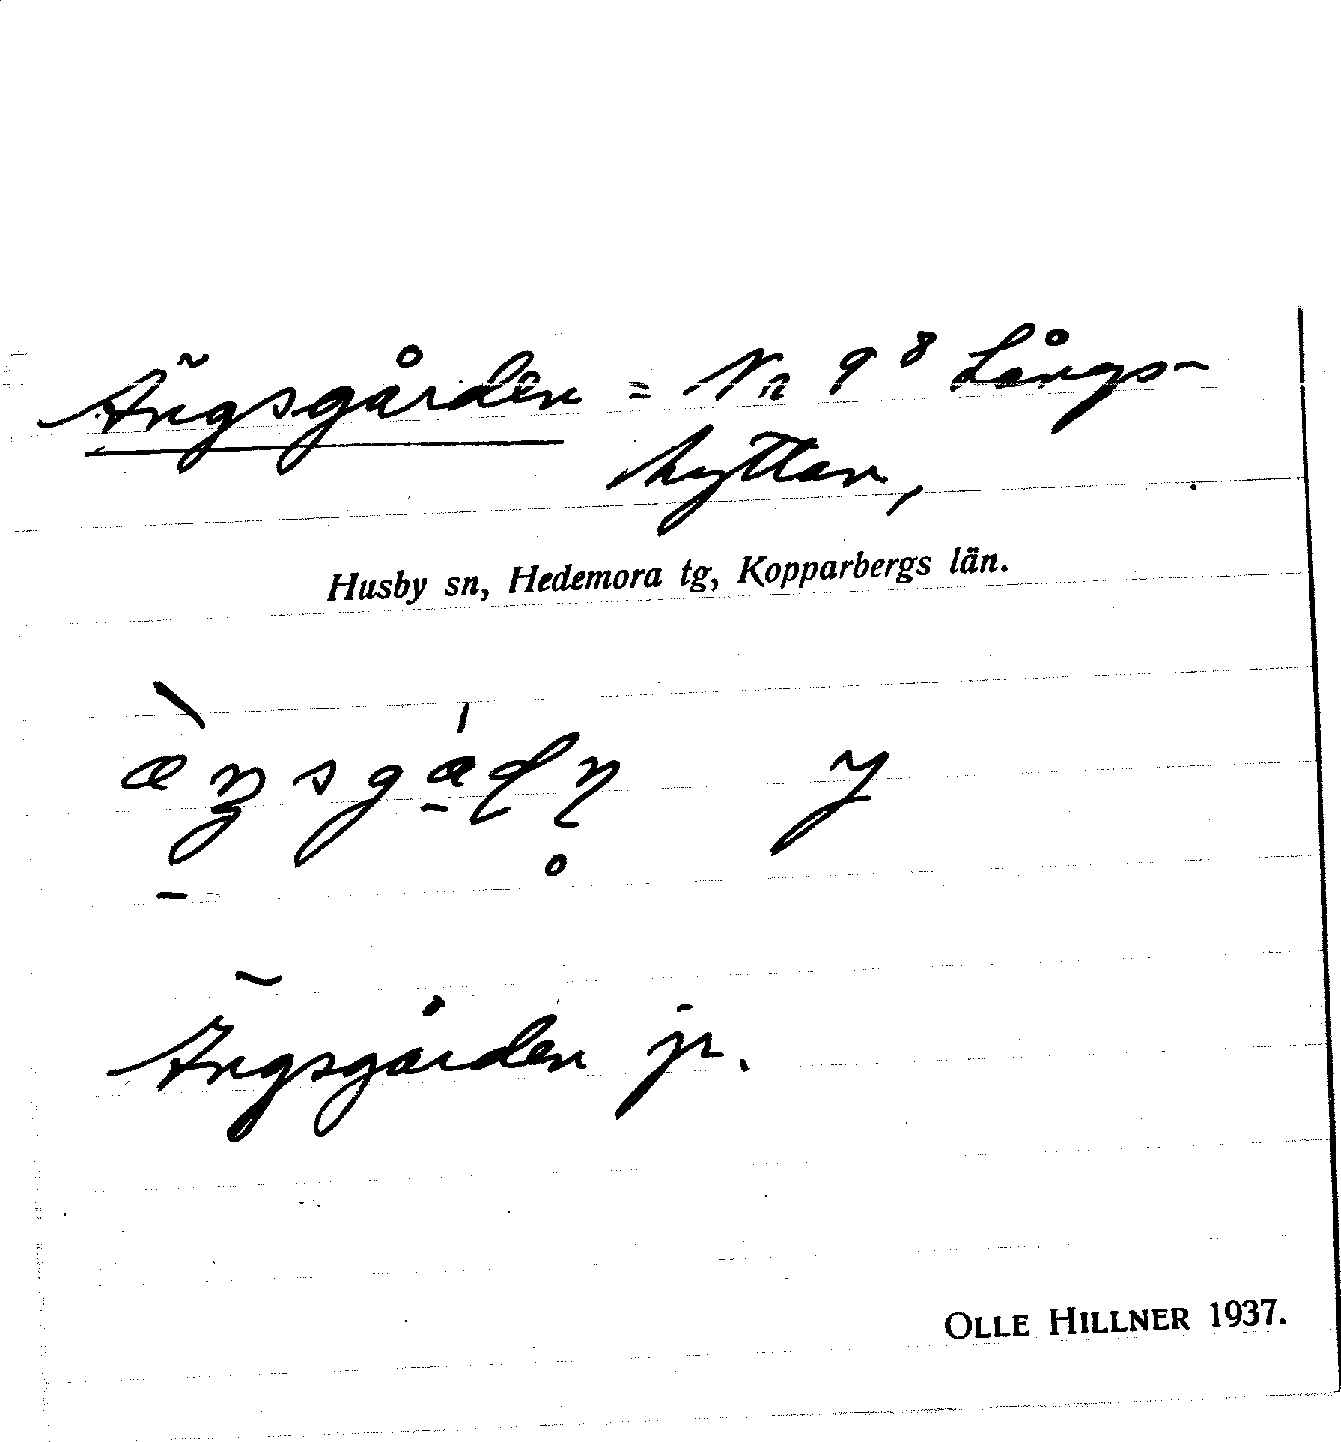 Ängsgården = Nr 9⁸ Långs-
hyttan,
Husby sn, Hedemora tg, Kopparbergs län.
Ängsgården jr.
OLLE HILLNER 1937.